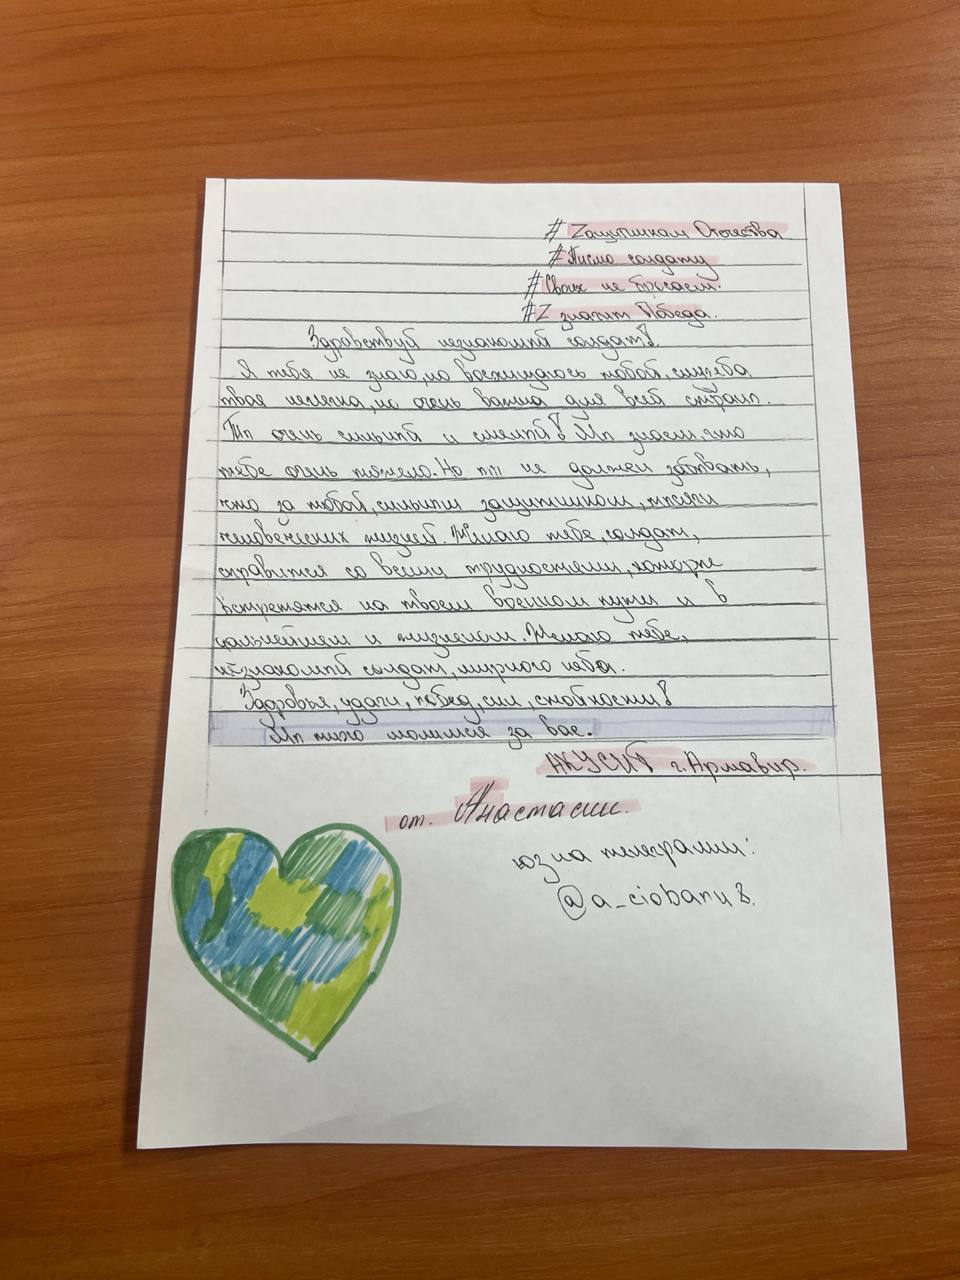 # Zащитникам Отечества
# Писмо солдату
# Своих не бросаем.
# Z значит Победа.
Здравствуй незнакомый солдат!
Я тебя не знаю, но восхищаюсь тобой, служба
твоя нелегка, но очень важна для всей страны.
Ты очень сильный и смелый! Мы знаем, что
тебе очень тяжело. Но ты не должен забывать,
что за тобой, сильным защитником, тысячи
человеческих жизней. Желаю тебе, солдат,
справится со всеми трудностями, которые
встретятся на твоем военном пути и в
дальнейшем и жизнелом. Желаю тебе,
незнакомый солдат, мирного неба.
Здоровья, удачи, побед, сил, стойкости!
Мы тихо молимся за вас.
АКУСИТ г. Армавир.
от. Анастасии.
юз на телеграмм:
@a_ciobanu8.